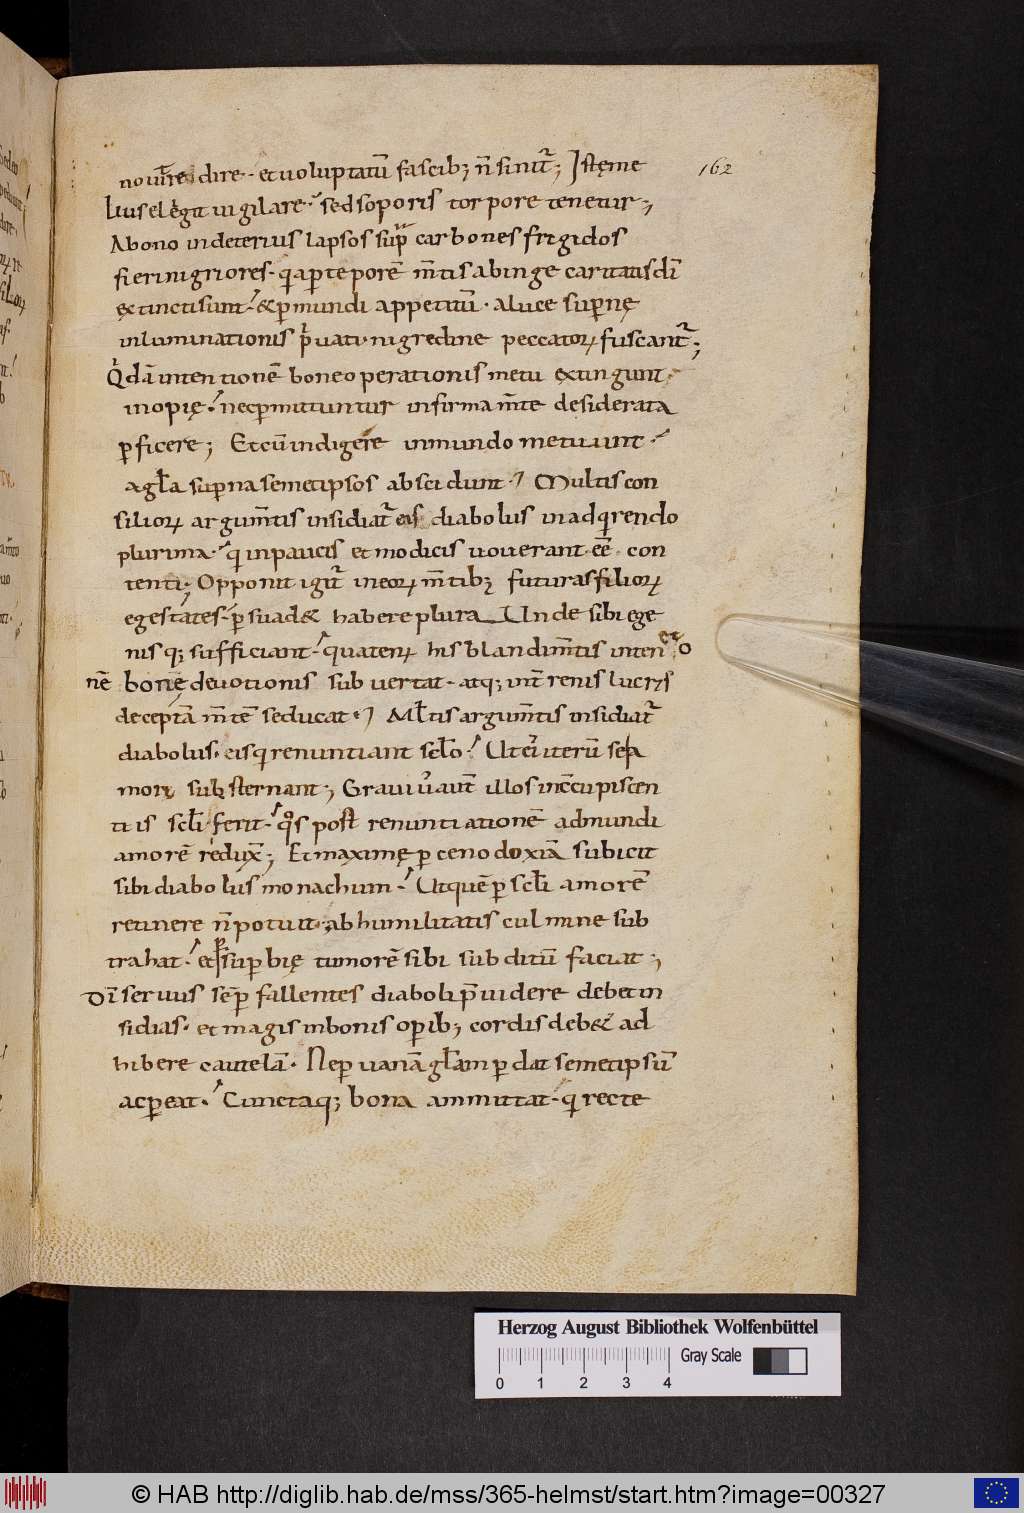 162
no uire dire. et uoluptatū fascib; n̄ sinit᷑; Istęme
lius elegit uigilare. sed soporis torpore tenetur;
A bono in deterius lapsos sup̄ carbones frigidos
fieri nigriores. qi aptepore m̄tis ab inge caritatis dī
extincti sunt. & ꝑ mundi appetitū. a luce supernę
inluminationis pͥuati. nigredine peccatoꝝ fuscant᷑;
Qͥdā intentionē bone operationis metu extingunt
inopię. nec ꝑmittuntur infirma m̄te desiderata
ꝑficere; Et cū indigere in mundo metuunt.
a gła superna semetipsos abscidunt. Multis con
silioꝝ argum̄tis insidiat᷑ eis diabolus in adqirendo
plurima. qi in paucis et modicis uouerant. eē con
tenti. Opponit igit᷑ in eoꝝ m̄tibꝫ futuras filioꝝ
egestates. ꝑsuad& habere plura Unde sibi ege
nisq; sufficiant. quaten᷒ his blandim̄tis inten et o
nē bonę deuotionis subuertat. atq; int̄renis lucris
deceptā m̄tē seducat. Młtis argum̄tis insidiat᷑
diabolus. eis qi renuntiant scło. Ut eͥ iterū se a
mori substernant; Graui u᷑ aut̄ illos in c̄cupiscen
tiis scłi ferit. qos post renuntiationē ad mundi
amorē reduxͭ; Et maximę ꝑ cenodoxiā subicit
sibi diabolus monachum. Ut quē ꝑ scłi amorē
retinere n̄ potuit. ab humilitatis culmine sub
trahat. et ꝑ superbię tumorē sibi subditū faciat;
Dī seruus sēꝑ fallentes diaboli p̄uidere debet in
sidias. et magis in bonis opib; cordis deb& ad
hibere cautelā. Ne ꝑ uanā głam ꝑdat semetipsū
ac ꝑeat. Cunctaq; bona ammittat. qi recte
Herzog August Bibliothek Wolfenbüttel
Gray Scale
0 1 2 3 4
© HAB http://diglib.hab.de/mss/365-helmst/start.htm?image=00327